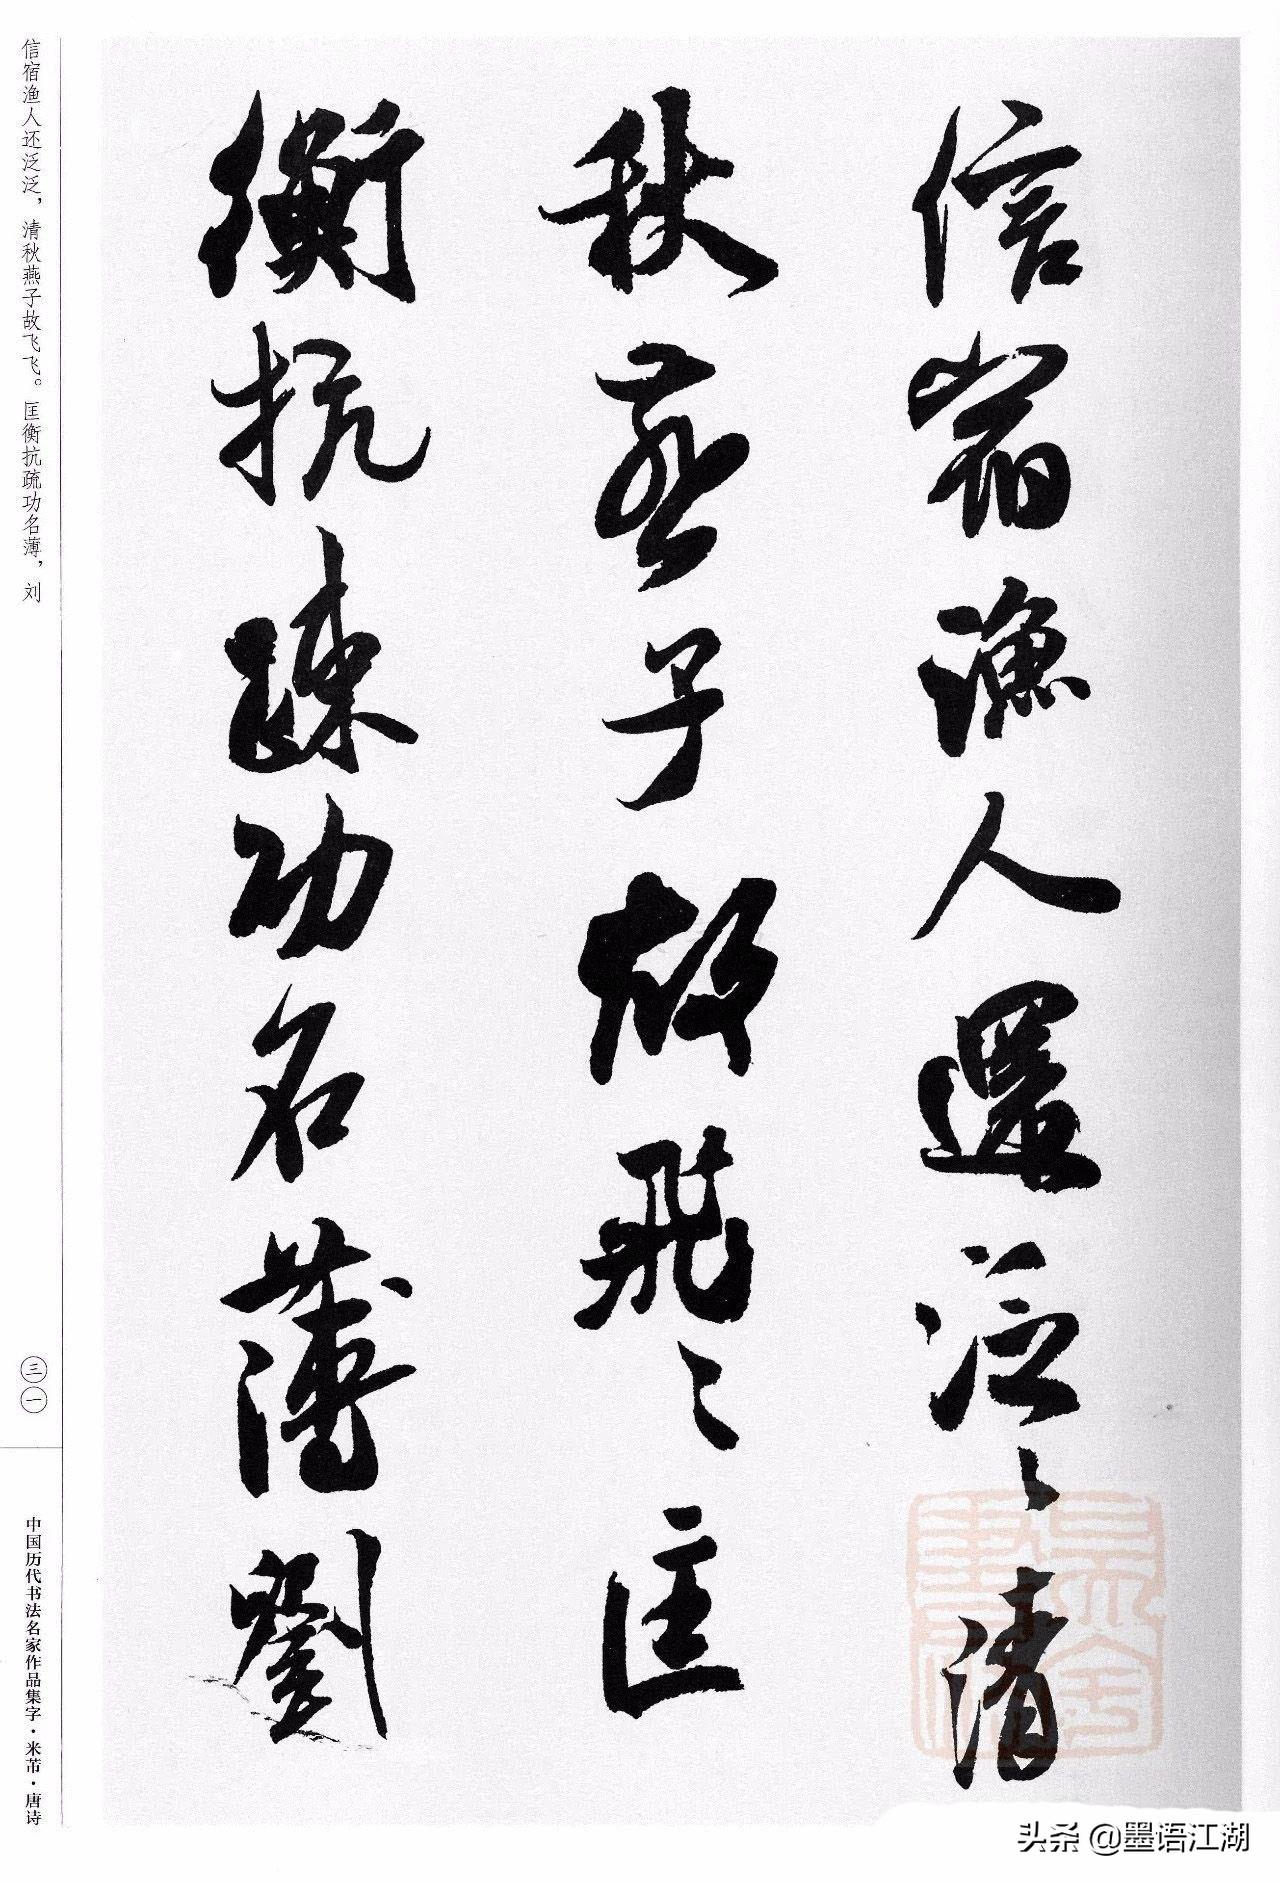 信宿漁人還泛〻清
秋燕子故飛〻匡
衡抗疏功名薄劉
信宿渔人还泛泛，清秋燕子故飞飞。匡衡抗疏功名薄，刘
三一
中国历代书法名家作品集字·米芾·唐诗
头条 @墨语江湖